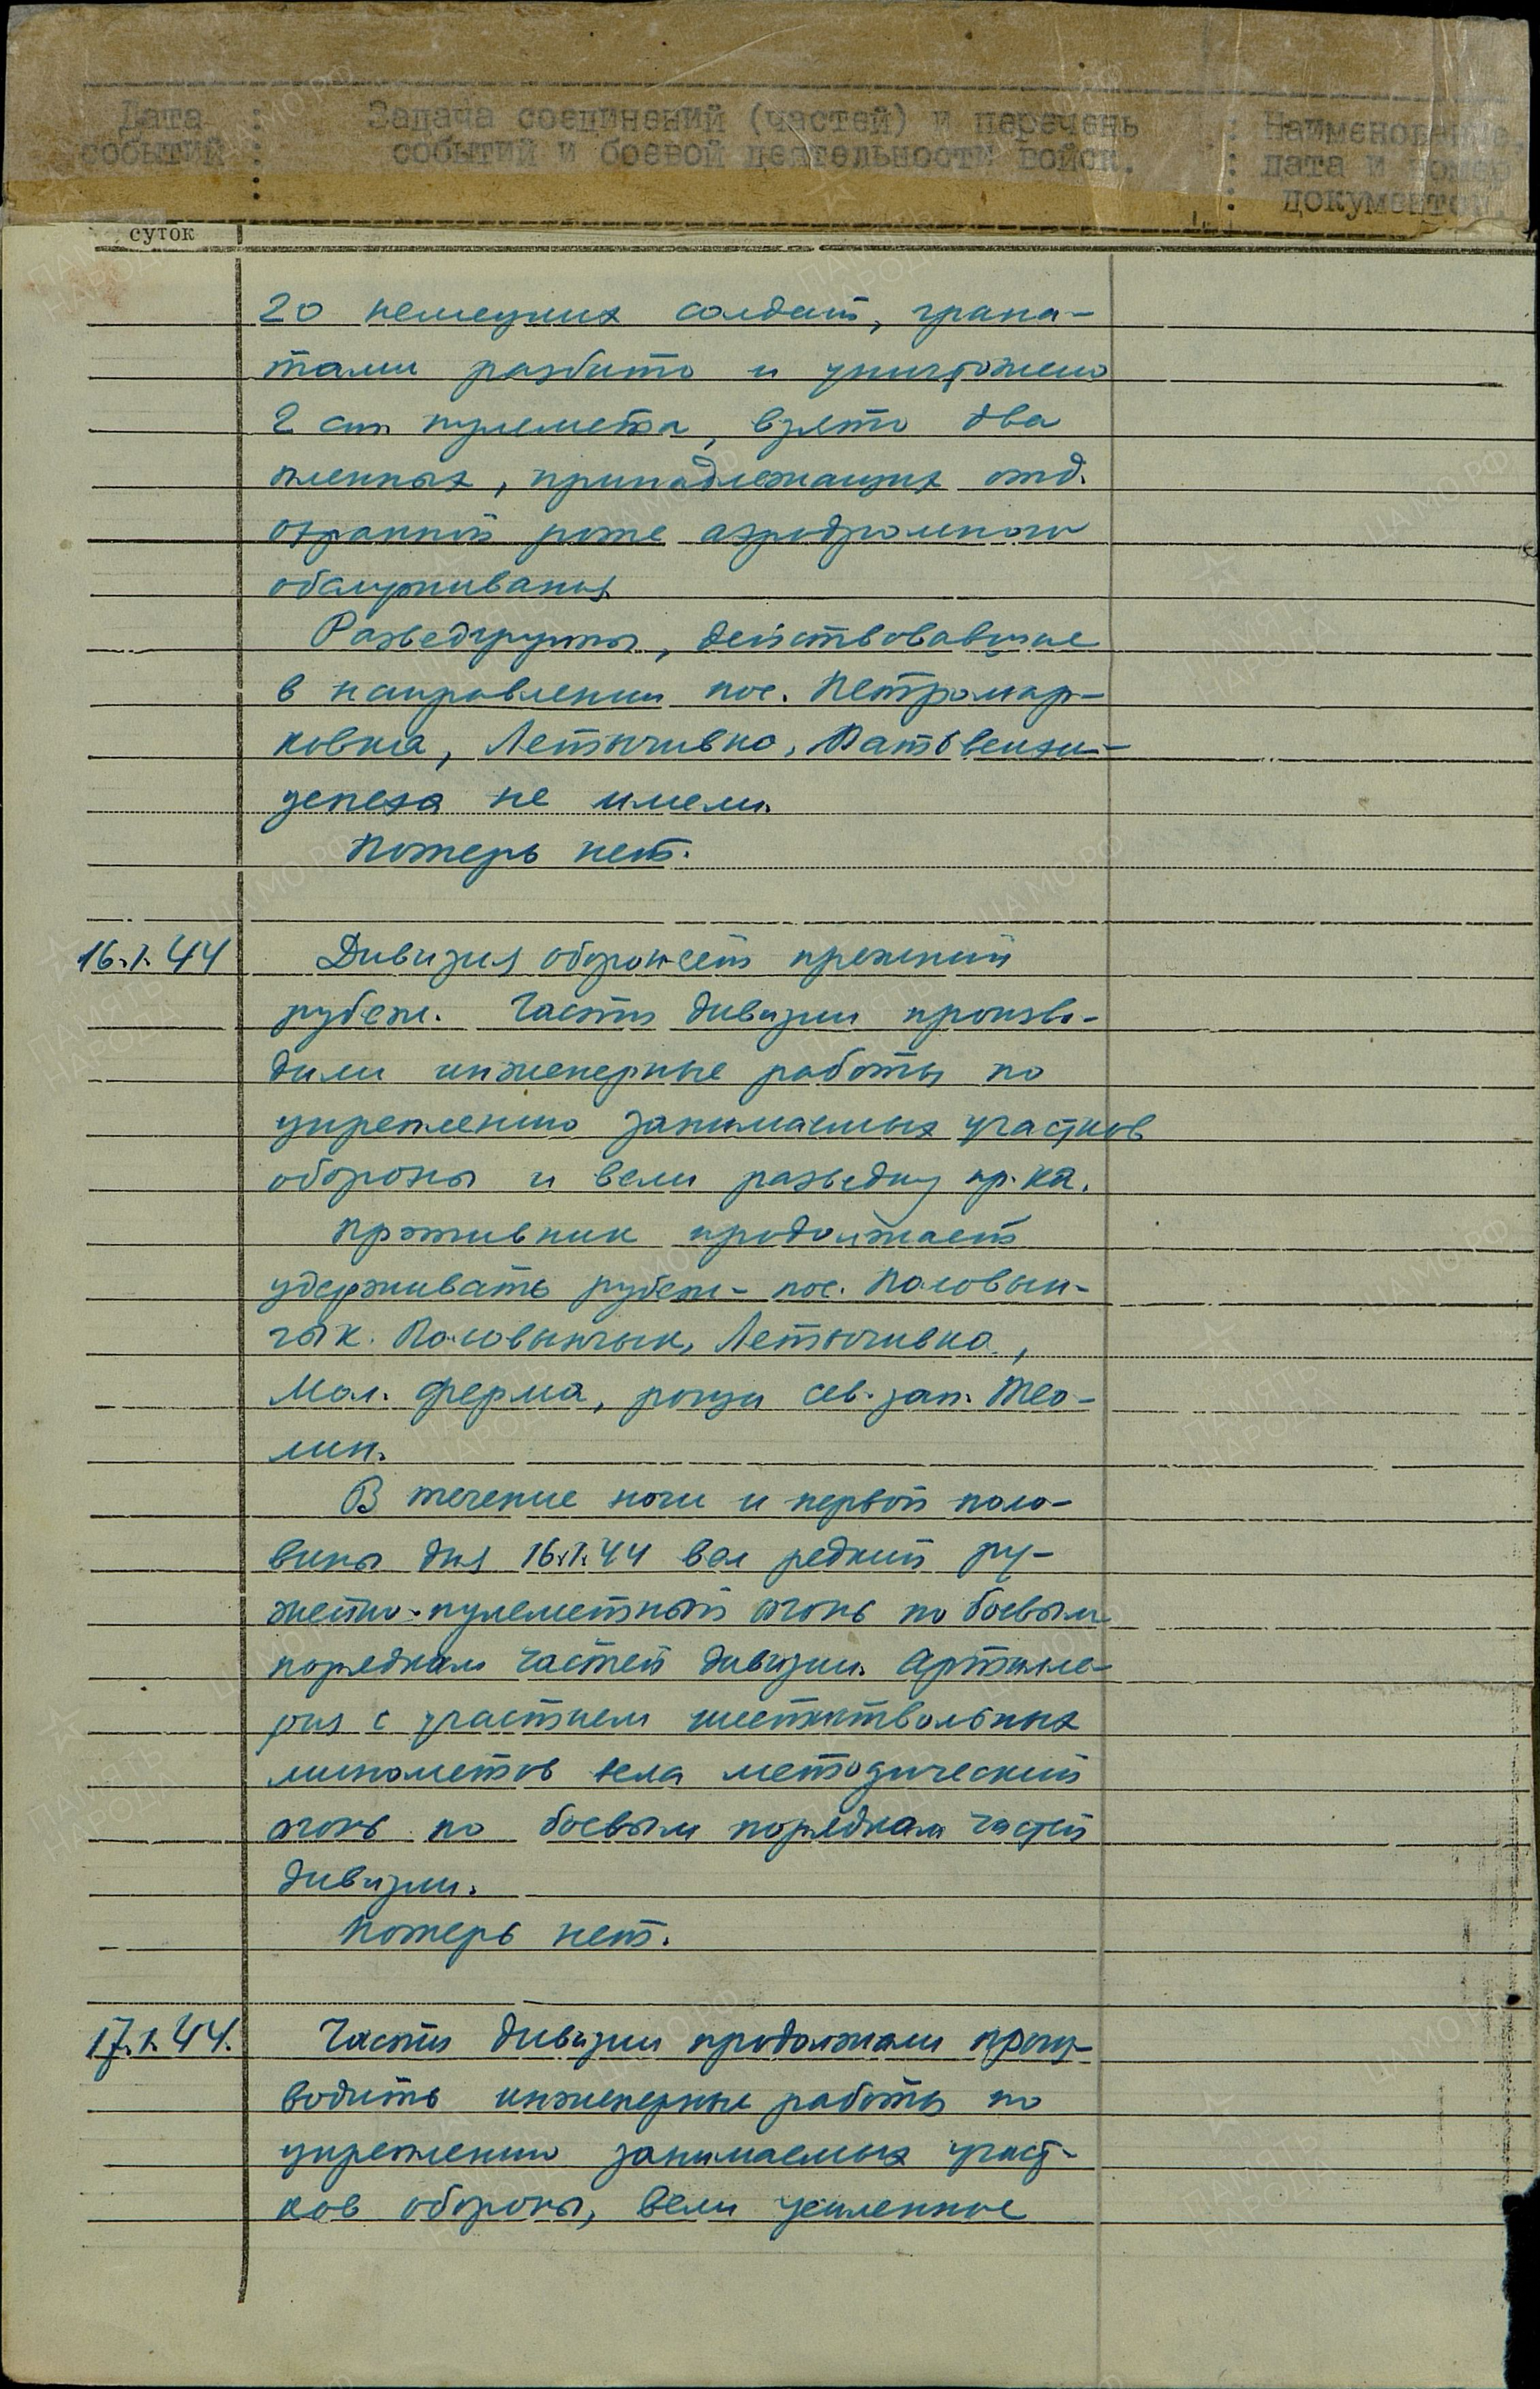 Дата : Задача соединений (частей) и перечень : Наименование,
событий : событий и боевой деятельности войск. : дата и номер
: : документов.
суток
20 немецких солдат, грана-
тами разбито и уничтожено
2 ст. пулемета, взято два
пленных, принадлежащих отд.
охранной роте аэродромного
обслуживания
Разведгруппы, действовавшие
в направлении пос. Петромар-
ковка, Летычивка,
успеха не имели.
Потерь нет.
16.1.44 Дивизия обороняет прежний
рубеж. Части дивизии произво-
дили инженерные работы по
укреплению занимаемых участков
обороны и вели разведку пр-ка.
Противник продолжает
удерживать рубеж - пос. Половын-
чык. Половынчык, Летычивка,
Мол. ферма, рощи сев. зап. Тео-
лин.
В течение ночи и первой поло-
вины дня 16.1.44 вел редкий ру-
жейно-пулеметный огонь по боевым
порядкам частей дивизии. Артилле-
рия с участием шестиствольных
минометов вела методический
огонь по боевым порядкам частей
дивизии.
Потерь нет.
17.1.44. Части дивизии продолжали произ-
водить инженерные работы по
укреплению занимаемых участ-
ков обороны, вели усиленное